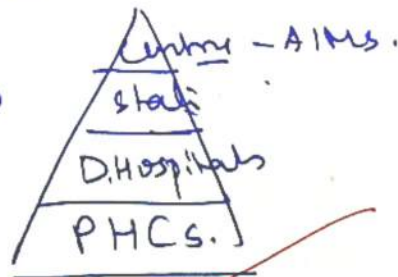 Centre - AIMs.
State
D.Hospitals
PHCs.